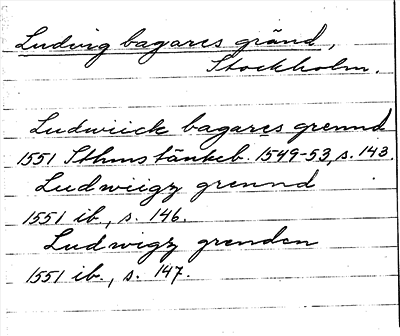 Ludvig bagares gränd,
Stockholm.
Ludwiick bagares grennd
1551 Sthms tänkeb. 1549-53, s. 143.
Ludwiigz grennd
1551 ib., s. 146.
Ludwigz grenden
1551 ib., s. 147.